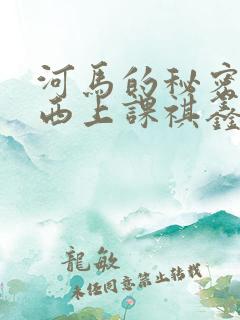 河馬的秘密
西上課祺鑫
龍敏
未任同意禁止转载